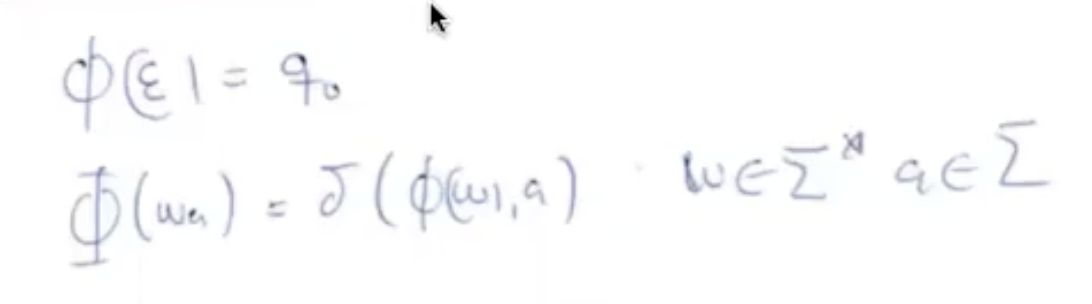 ϕ(ε) = q₀
Φ(wa) = δ(ϕ(w), a) w ∈ Σ* a ∈ Σ